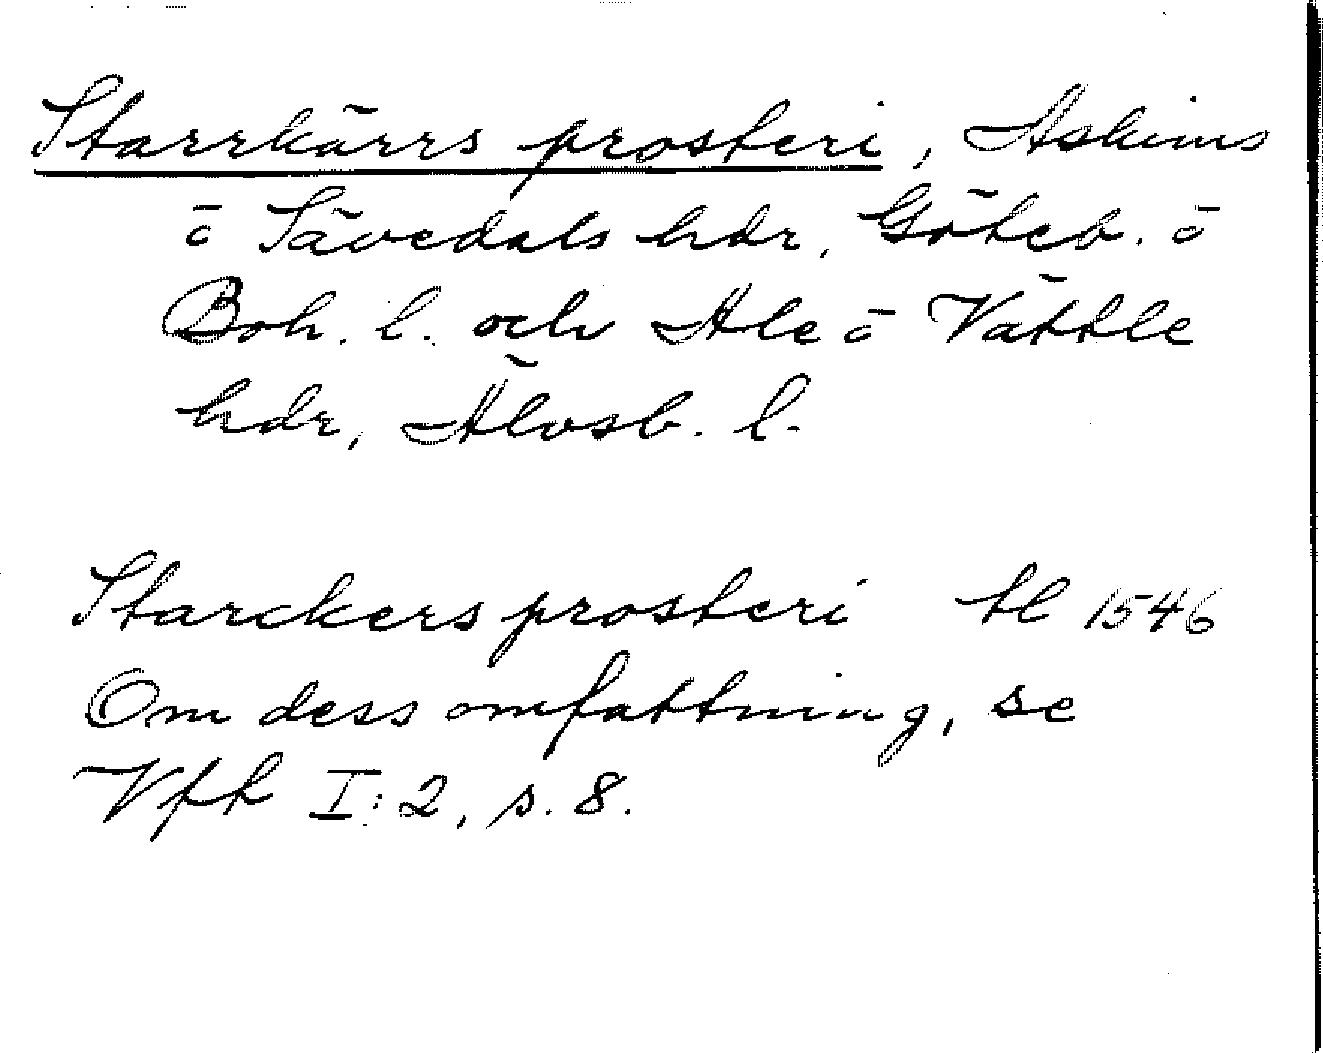 Starrkärrs prosteri, Askims
o Sävedals hdr, Göteb. o
Boh. l. och Ale o Vättle
hdr, Älvsb. l.
Starckers prosteri tl 1546
Om dess omfattning, se
Vfk I:2, s. 8.